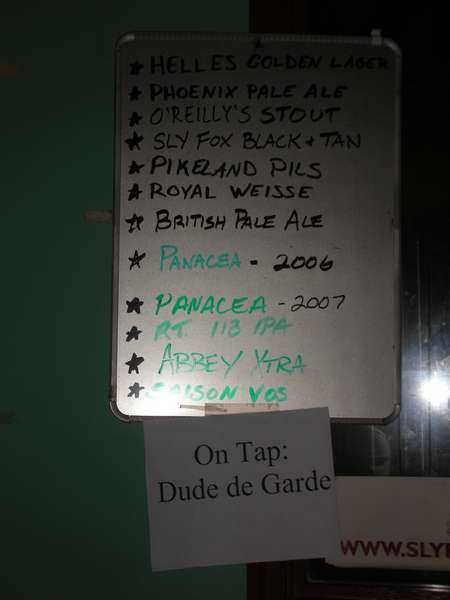 ★ HELLES GOLDEN LAGER
★ PHOENIX PALE ALE
★ O'REILLY'S STOUT
★ SLY FOX BLACK + TAN
★ PIKELAND PILS
★ ROYAL WEISSE
★ BRITISH PALE ALE
★ PANACEA - 2006
★ PANACEA - 2007
★ RT. 113 IPA
★ ABBEY XTRA
★ SAISON VOS
On Tap:
Dude de Garde
WWW.SLY